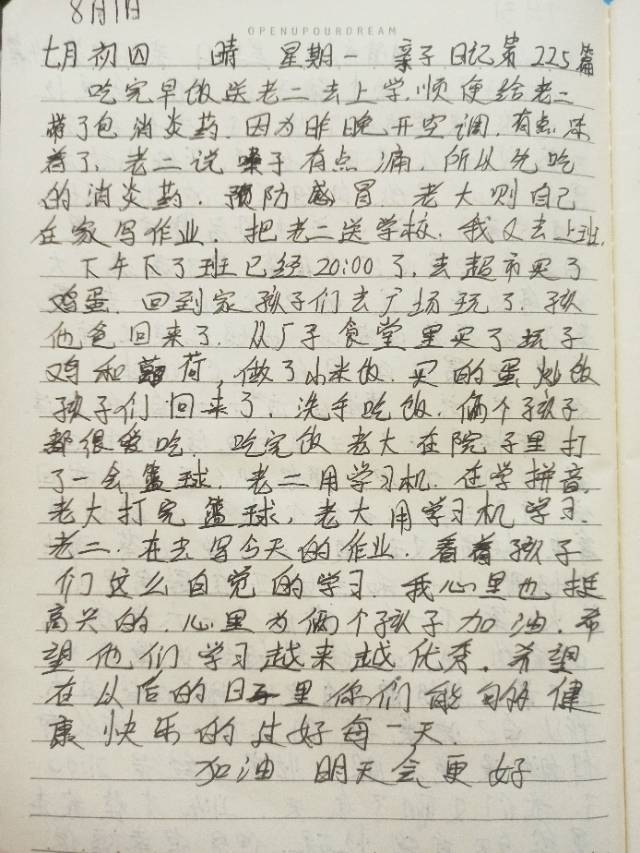 8月1日
OPENUPOURDREAM
七月初四 晴 星期一 亲子日记第225篇
吃完早饭送老二去上学.顺便给老二
带了包消炎药.因为昨晚开空调.有点冻
着了.老二说嗓子有点痛.所以先吃
的消炎药.预防感冒.老大则自己
在家写作业.把老二送学校.我又去上班.
下午下了班已经20:00了.去超市买了
鸡蛋.回到家孩子们去广场玩了.孩
他爸回来了.从厂子食堂里买了坛子
鸡和薄荷,做了小米饭.买的蛋炒饭
孩子们回来了.洗手吃饭.俩个孩子
都很爱吃.吃完饭老大在院子里打
了一会篮球.老二用学习机.在学拼音,
老大打完篮球,老大用学习机学习.
老二.在去写今天的作业.看着孩子
们这么自觉的学习.我心里也挺
高兴的.心里为俩个孩子加油.希
望他们学习越来越优秀.希望
在以后的日子里你们能够健
康快乐的过好每一天.
加油 明天会更好